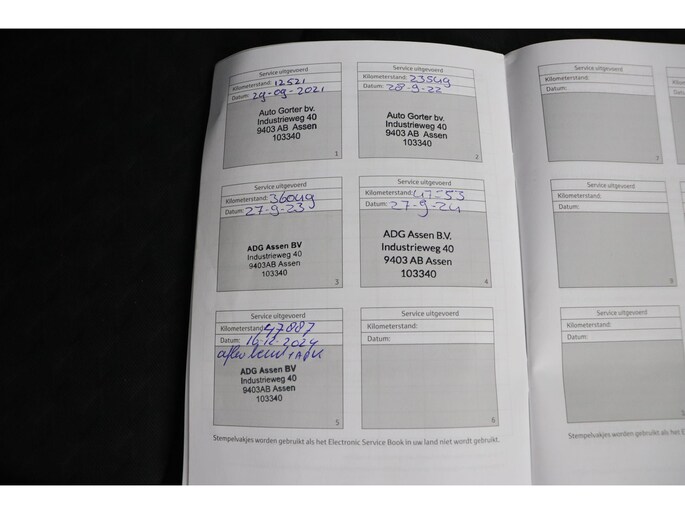 Service uitgevoerd
Kilometerstand: 12521
Datum: 29-09-2021
Auto Gorter bv.
Industrieweg 40
9403 AB Assen
103340
1
Service uitgevoerd
Kilometerstand: 23549
Datum: 28-9-22
Auto Gorter bv.
Industrieweg 40
9403 AB Assen
103340
2
Service uitgevoerd
Kilometerstand: 36049
Datum: 27-9-23
ADG Assen BV
Industrieweg 40
9403AB Assen
103340
3
Service uitgevoerd
Kilometerstand:
Datum: 27-9-24
ADG Assen B.V.
Industrieweg 40
9403 AB Assen
103340
4
Service uitgevoerd
Kilometerstand: 47887
Datum: 16-12-2024
ADG Assen BV
Industrieweg 40
9403AB Assen
103340
5
Service uitgevoerd
Kilometerstand:
Datum:
6
Stempelvakjes worden gebruikt als het Electronic Service Book in uw land niet wordt gebruikt.
Service uitgevoerd
Kilometerstand:
Datum:
7
Service uitgevoerd
Kilometerstand:
Datum:
Service uitgevoerd
Kilometerstand:
Datum:
Stempelvakjes worden gebruikt als het E